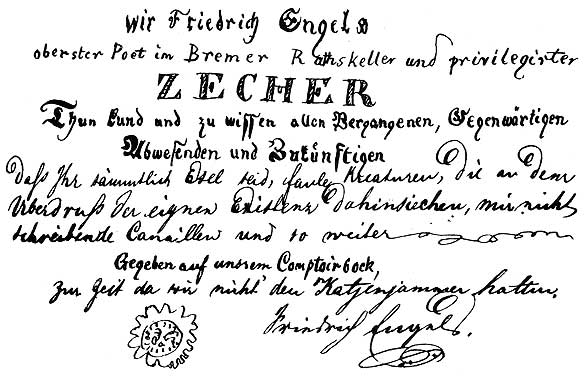 Wir Friedrich Engels
oberster Poet im Bremer Rathskeller und privilegirter
ZECHER
Thun kund und zu wissen allen Vergangenen, Gegenwärtigen
Abwesenden und Zukünftigen
daß Ihr sämmtlich Esel seid, faule Kreaturen, die an dem
Überdruß der eignen Existenz dahinsiechen, mir nicht
schreibende Canaillen und so weiter
Gegeben auf unsrem Comptoirbock,
zur Zeit da wir nicht den Katzenjammer hatten.
Friedrich Engels.